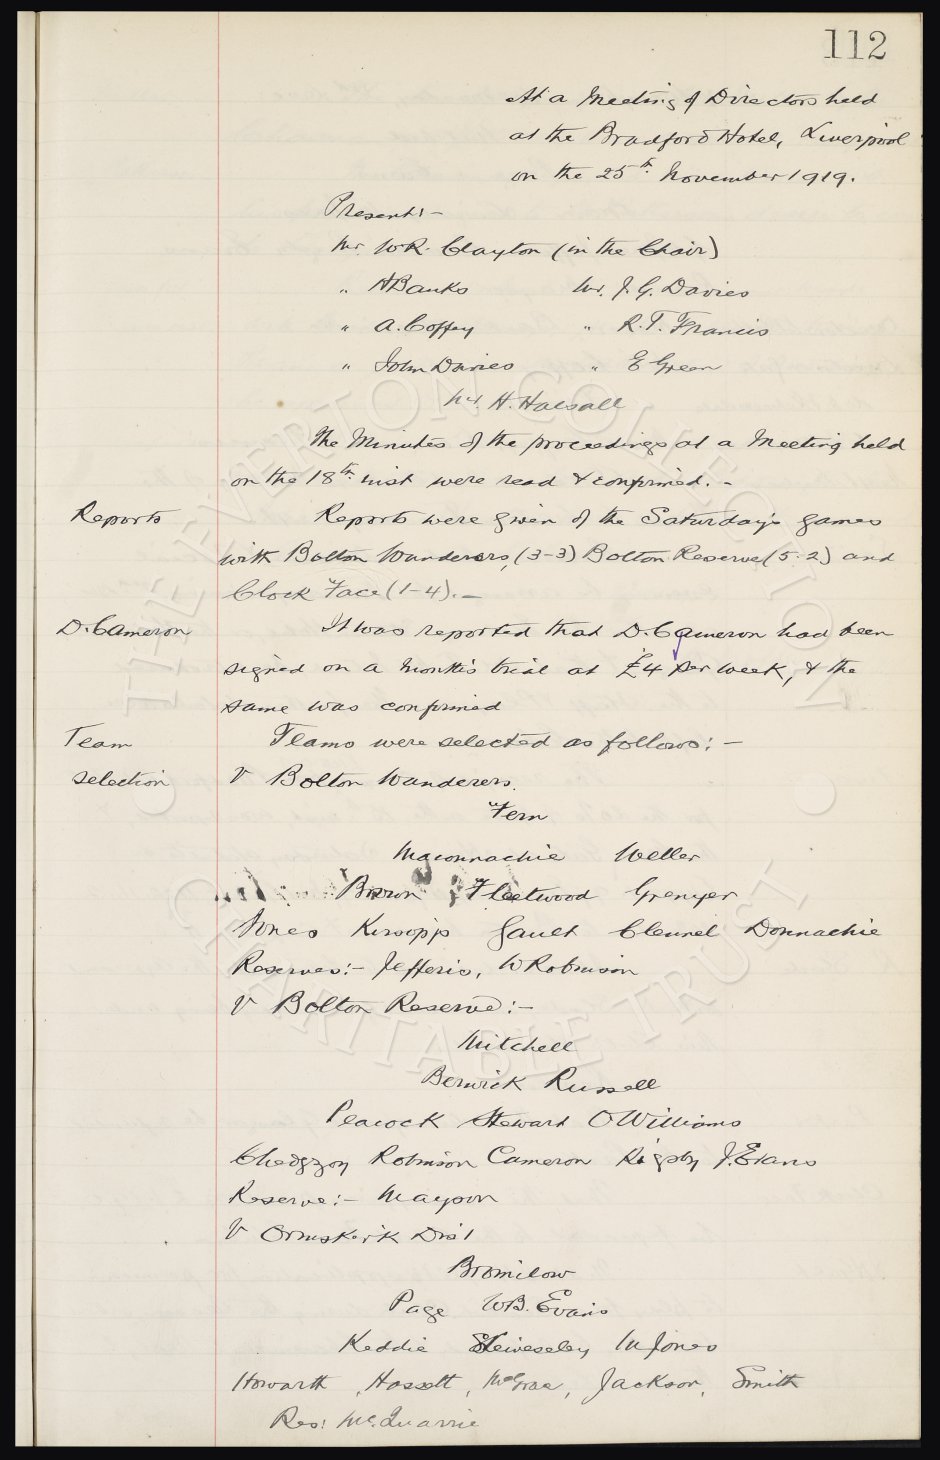 112
At a Meeting of Directors held
at the Bradford Hotel, Liverpool
on the 25th. November 1919.
Present:-
Mr. W.R. Clayton (in the Chair)
" A Banks Mr. J.G. Davies
" A. Coffey " R.T. Francis
" John Davies " E Green
Mr. H. Halsall
The Minutes of the proceedings at a Meeting held
on the 18th. inst were read & confirmed. -
Reports Reports were given of the Saturday's games
with Bolton Wanderers, (3-3) Bolton Reserve (5-2) and
Clock Face (1-4). -
D. Cameron It was reported that D. Cameron had been
signed on a month's trial at £4 per week, & the
same was confirmed
Team Teams were selected as follows: -
selection V Bolton Wanderers.
Fern
Maconnachie Weller
Brown Fleetwood Grenyer
Jones Kirsopp Gault Clennel Donnachie
Reserves:- Jefferis, W Robinson
V Bolton Reserve:-
Mitchell
Berwick Russell
Peacock Stewart O Williams
Chedgzoy Robinson Cameron Rigsby J. Evans
Reserve:- Mayson
V Ormskirk Dist
Bromilow
Page W.B. Evans
Keddie Skeiveseley W Jones
Howarth, Hassett, McGrae, Jackson, Smith
Res: Mc.Quarrie
THE EVERTON COLLECTION
CHARITABLE TRUST